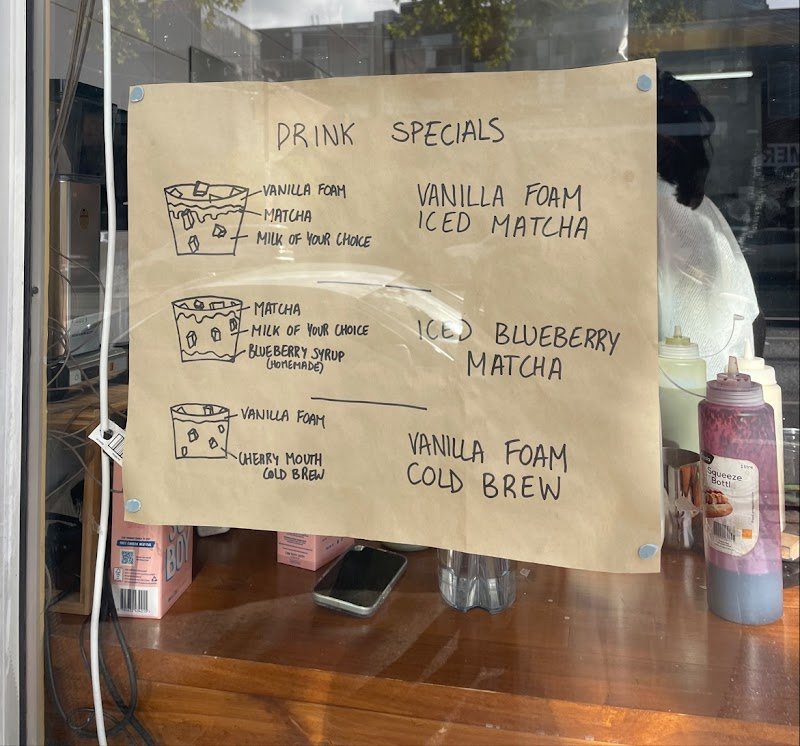 DRINK SPECIALS
VANILLA FOAM
MATCHA
MILK OF YOUR CHOICE
VANILLA FOAM
ICED MATCHA
MATCHA
MILK OF YOUR CHOICE
BLUEBERRY SYRUP
(HOMEMADE)
ICED BLUEBERRY
MATCHA
VANILLA FOAM
CHERRY MOUTH
COLD BREW
VANILLA FOAM
COLD BREW
Squeeze
Bottl
BOY